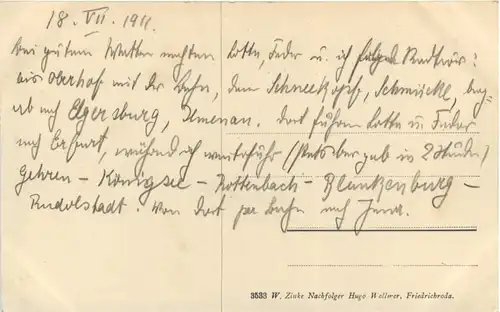 18. VII. 1911.
Bei gutem Wetter machten Lotte, Feder u. ich folgd Radtour:
bis Oberhof mit der Bahn, dann Schneekopf, Schmücke, berg-
ab nach Elgersburg, Ilmenau. Dort fuhren Lotte u. Feder
nach Erfurt, während ich weiterfuhr (bergab in 2 Stunden)
Gehren - Königsee - Rottenbach - Blankenburg -
Rudolstadt. Von dort per Bahn nach Jena.
3533 W. Zinke Nachfolger Hugo Wollwer, Friedrichroda.